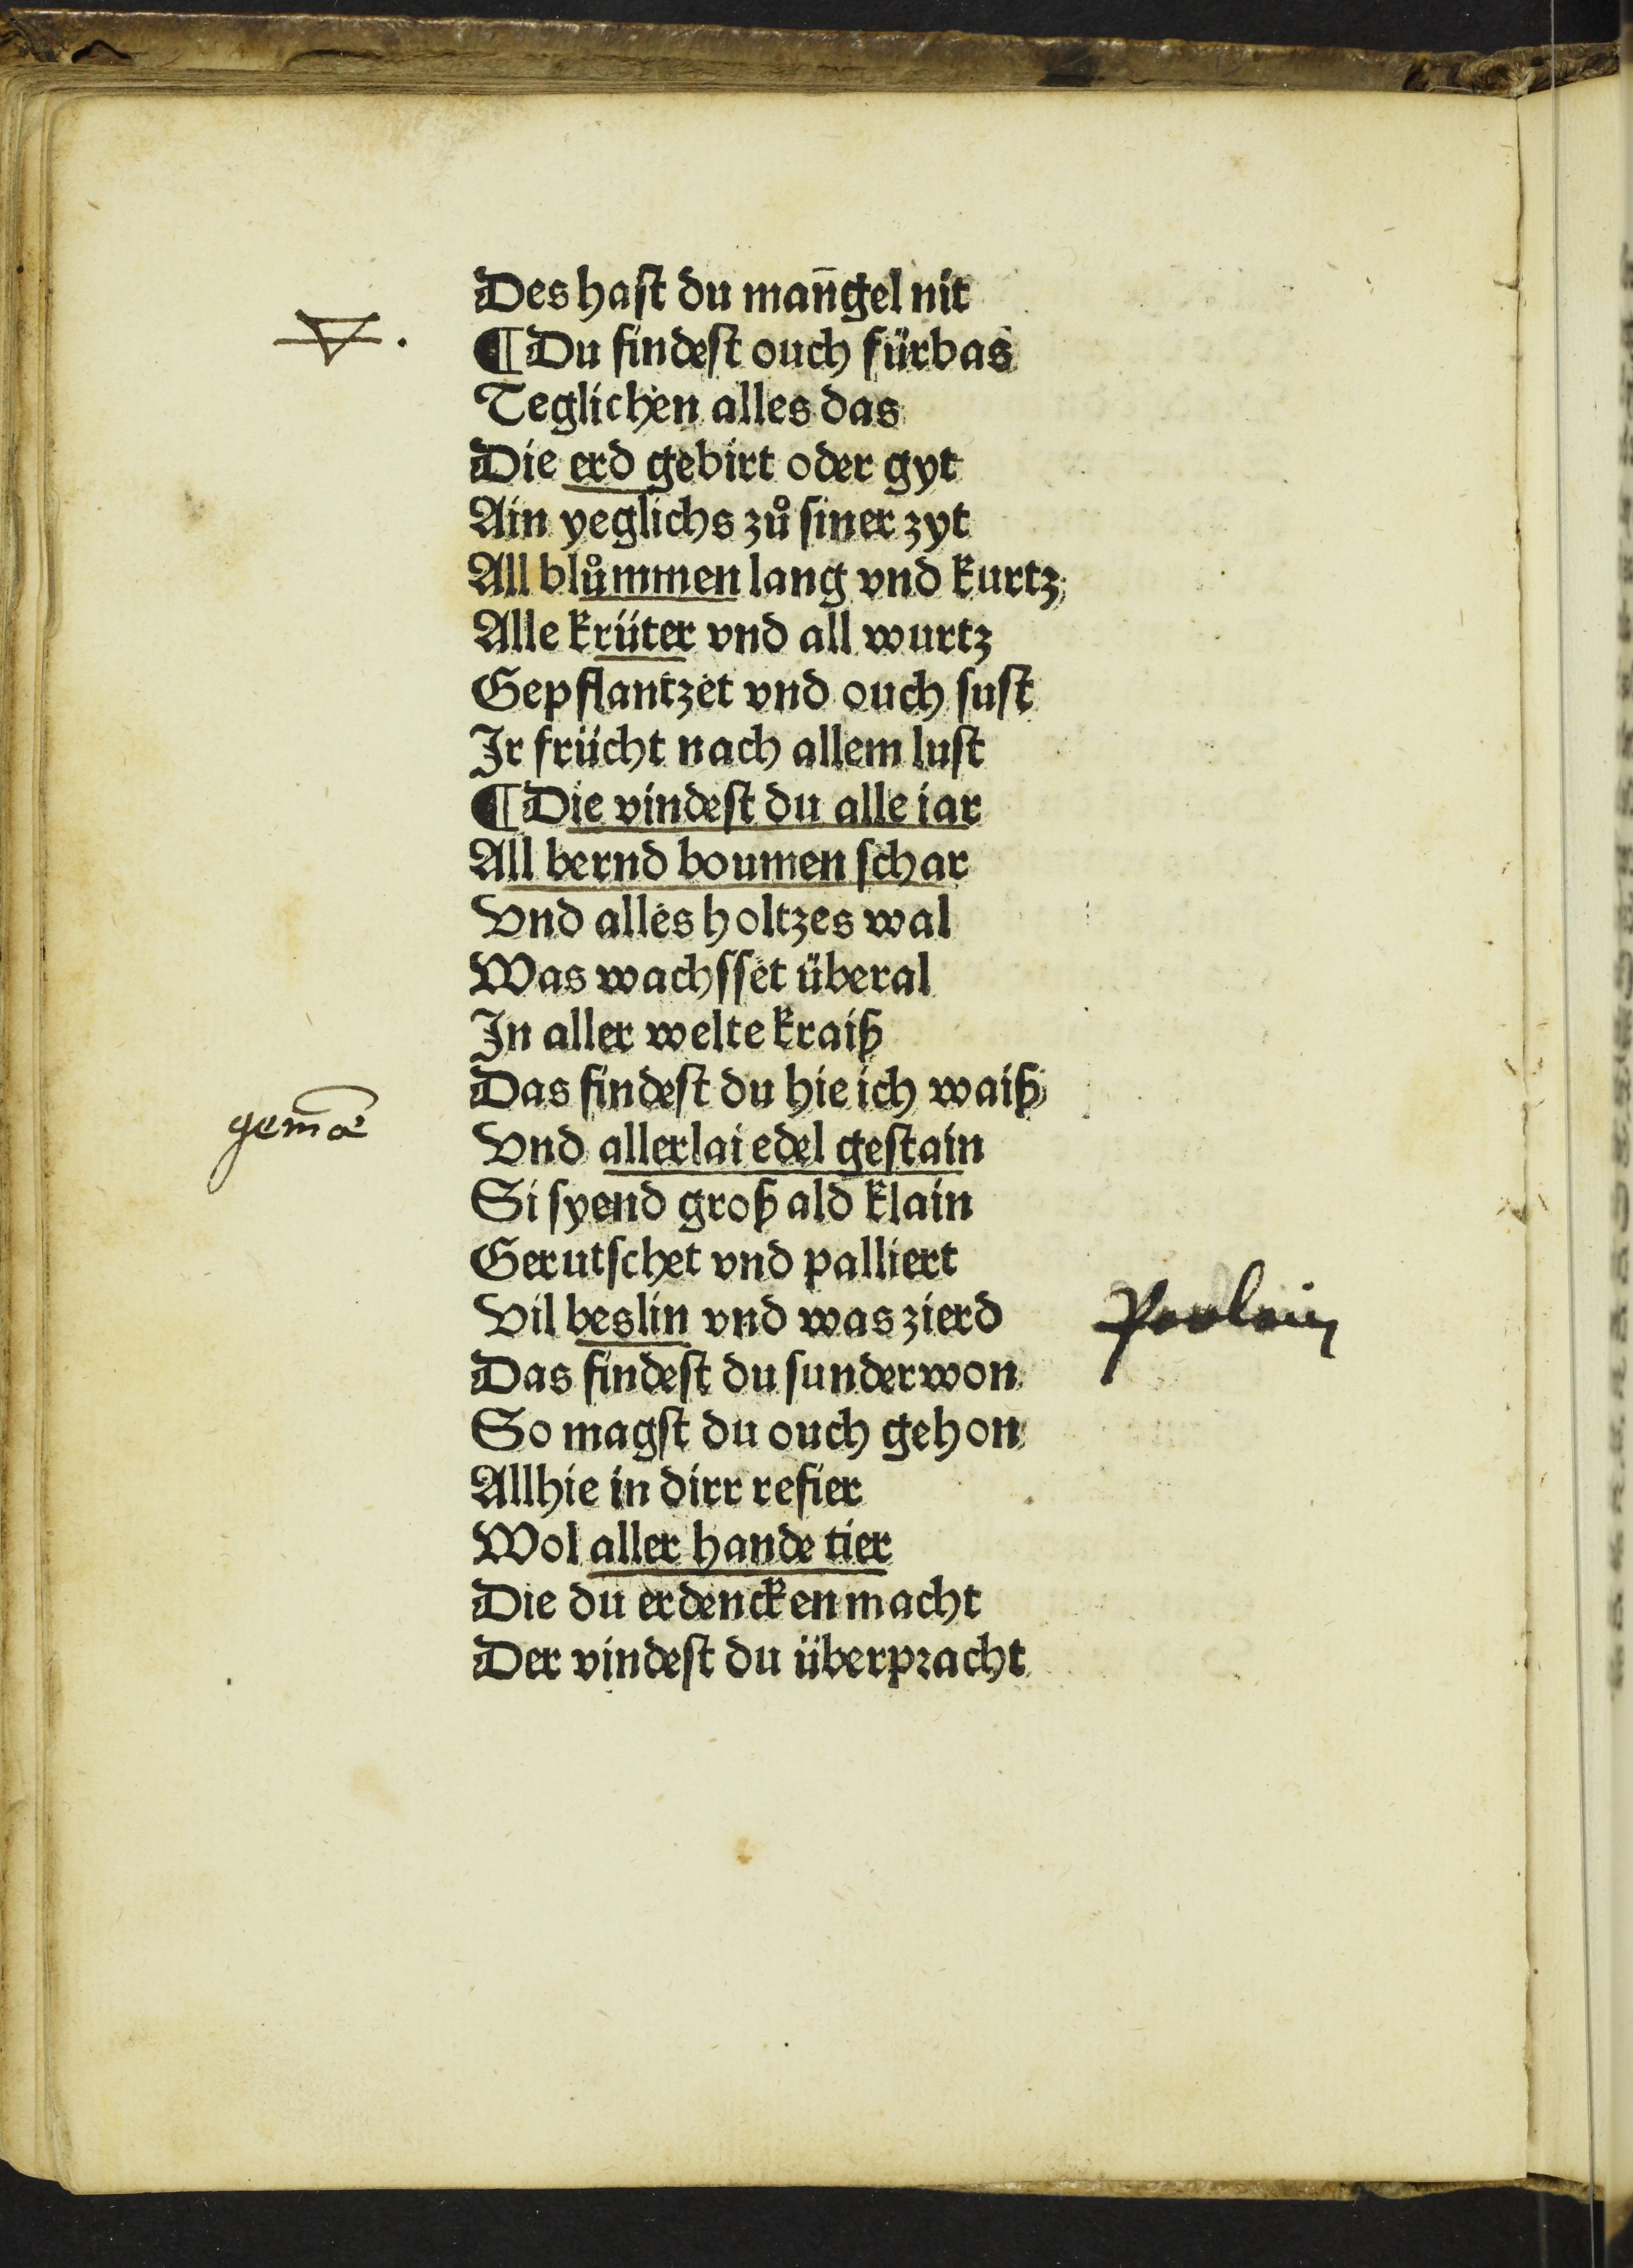 Des hast du man̄gel nit
¶ Du findest ouch fürbas
Teglichen alles das
Die erd gebirt oder gyt
Ain yeglichs zů siner zyt
All blůmmen lang vnd kurtz
Alle krüter vnd all wurtz
Gepflantzet vnd ouch sust
Ir frücht nach allem lust
¶ Die vindest du alle iar
All bernd boumen schar
Vnd alles holtzes wal
Was wachsset überal
In aller welte kraiß
Das findest du hie ich waiß
gem̄æ
Vnd allerlai edel gestain
Si syend groß ald klain
Gerutschet vnd palliert
Vil beslin vnd was zierd
Das findest du sunder won
So magst du ouch gehon
Allhie in dirr refier
Wol aller hande tier
Die du erdencken macht
Der vindest du überpracht